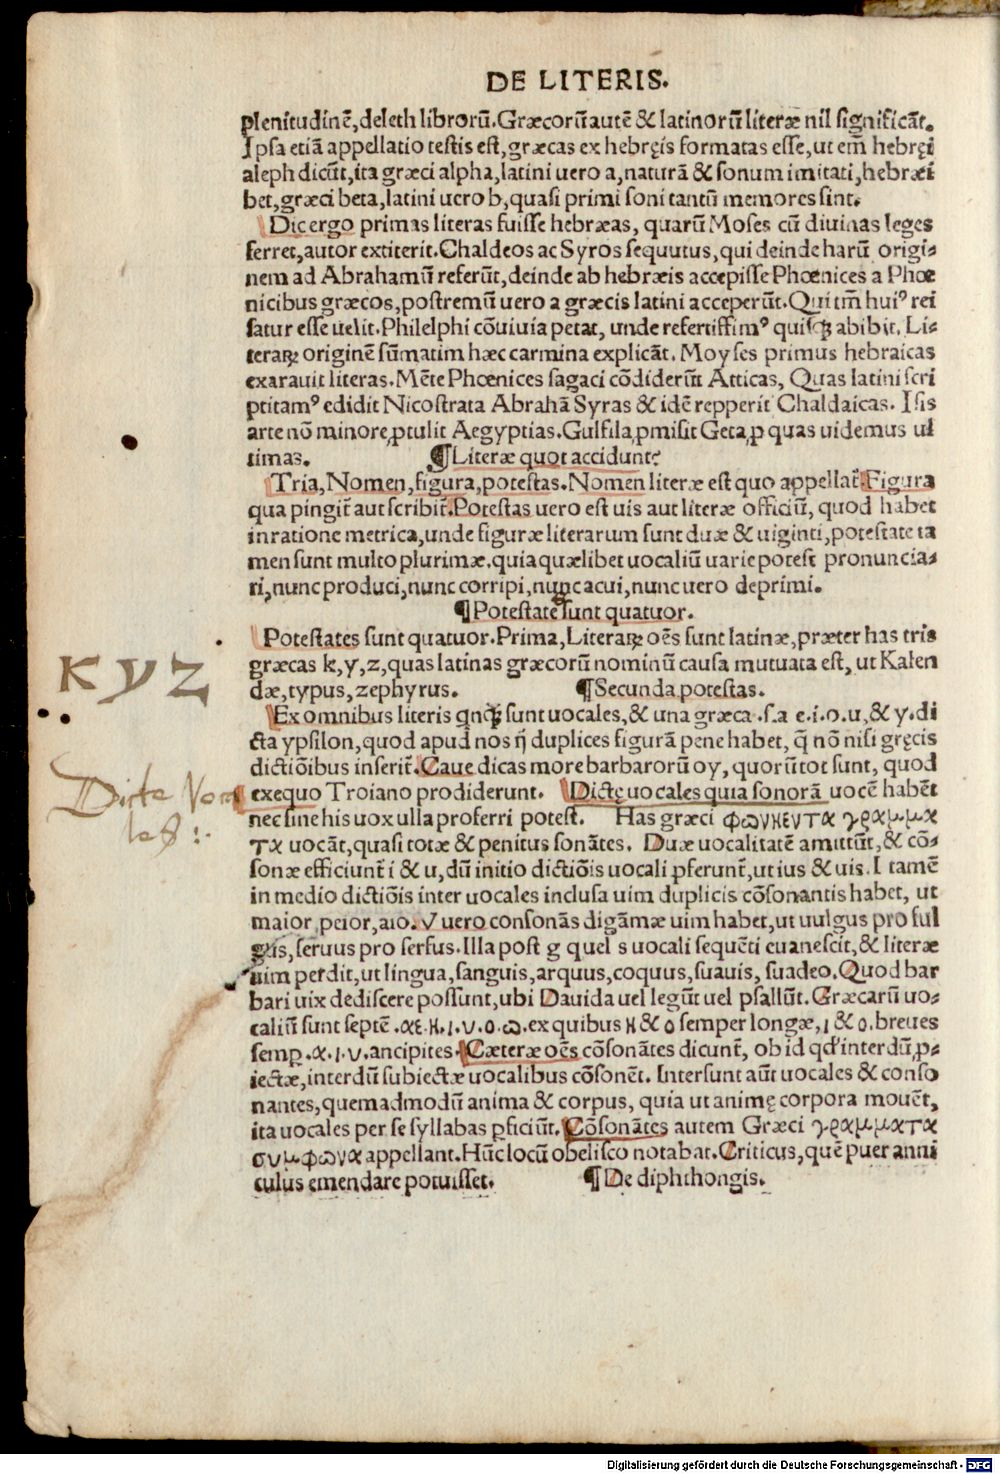 DE LITERIS.
plenitudinē, deleth librorū. Græcorū autē & latinorū literæ nil significāt.
Ipsa etiā appellatio testis est, græcas ex hebręis formatas esse, ut em̄ hebręi
aleph dicūt, ita græci alpha, latini uero a, naturā & sonum imitati, hebræi
bet, græci beta, latini uero b, quasi primi soni tantū memores sint.
Dic ergo primas literas fuisse hebræas, quarū Moses cū diuinas leges
ferret, autor extiterit. Chaldeos ac Syros sequutus, qui deinde harū origi-
nem ad Abrahamū referūt, deinde ab hebræis accepisse Phœnices a Phœ
nicibus græcos, postremū uero a græcis latini acceperūt. Qui tm̄ huiꝰ rei
satur esse uelit. Philelphi cōuiuia petat, unde refertissimꝰ quisq; abibit. Li-
teraꝝ originē sūmatim hæc carmina explicāt. Moyses primus hebraicas
exarauit literas. Mēte Phœnices sagaci cōdiderūt Atticas, Quas latini scri
ptitamꝰ edidit Nicostrata Abrahā Syras & idē repperit Chaldaicas. Isis
arte nō minore ꝓtulit Aegyptias. Gulfila ꝓmisit Geta, ꝑ quas uidemus ul
timas. ¶ Literæ quot accidunt?
Tria, Nomen, figura, potestas. Nomen literæ est quo appellat̄. Figura
qua pingit̄ aut scribit̄. Potestas uero est uis aut literæ officiū, quod habet
in ratione metrica, unde figuræ literarum sunt duæ & uiginti, potestate ta
men sunt multo plurimæ. quia quælibet uocaliū uarie potest pronuncia-
ri, nunc produci, nunc corripi, nunc acui, nunc uero deprimi.
¶ Potestate sunt quatuor.
Potestates sunt quatuor. Prima, Literaꝝ oēs sunt latinæ, præter has tris
græcas k, y, z, quas latinas græcorū nominū causa mutuata est, ut Kalen
dæ, typus, zephyrus. ¶ Secunda potestas.
K Y Z
Ex omnibus literis qnq; sunt uocales, & una græca .s. a e. i. o. u, & y. di
cta ypsilon, quod apud nos ij duplices figurā pene habet, q̄ nō nisi gręcis
dictiōibus inserit̄. Caue dicas more barbarorū oy, quorū tot sunt, quod
ex equo Troiano prodiderunt. Dictę uocales quia sonorā uocē habēt
Dicte Voca
les :.
nec sine his uox ulla proferri potest. Has græci φωνηεντα γραμμα
τα uocāt, quasi totæ & penitus sonātes. Duæ uocalitatē amittūt, & cō-
sonæ efficiunt̄ i & u, dū initio dictiōis uocali ꝓferunt̄, ut ius & uis. I tamē
in medio dictiōis inter uocales inclusa uim duplicis cōsonantis habet, ut
maior, peior, aio. V uero consonās digāmæ uim habet, ut uulgus pro ful
gus, seruus pro serfus. Illa post g q uel s uocali sequēti euanescit, & literæ
uim perdit, ut lingua, sanguis, arquus, coquus, suauis, suadeo. Quod bar
bari uix dediscere possunt, ubi Dauida uel legūt uel psallūt. Græcarū uo-
caliū sunt septē .α ε. η. ι. υ. ο. ω. ex quibus η & ο semper longæ, ι & ο. breues
semꝑ. α. ι. υ. ancipites. Cæteræ oēs cōsonātes dicunt̄, ob id qd' interdū ꝓ-
iectæ, interdū subiectæ uocalibus cōsonēt. Intersunt aūt uocales & conso
nantes, quemadmodū anima & corpus, quia ut animę corpora mouēt,
ita uocales per se syllabas ꝑficiūt. Cōsonātes autem Græci γραμματα
συμφωνα appellant. Hūc locū obelisco notabat. Criticus, quē puer anni
culus emendare potuisset. ¶ De diphthongis.
Digitalisierung gefördert durch die Deutsche Forschungsgemeinschaft - DFG